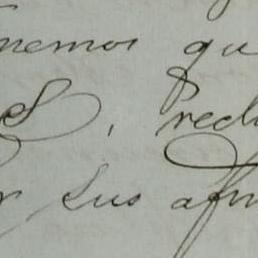 nemos qu
S, recl
r sus afm